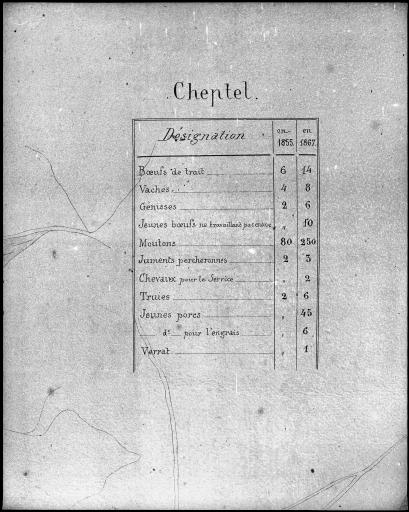 Cheptel.
Désignation en 1855. en 1867.
Bœufs de trait 6 14
Vaches 4 8
Génisses 2 6
Jeunes bœufs ne travaillant pas encore „ 10
Moutons 80 250
Juments percheronnes 2 3
Chevaux pour le Service „ 2
Truies 2 6
Jeunes porcs „ 45
d° pour l'engrais „ 6
Verrat „ 1